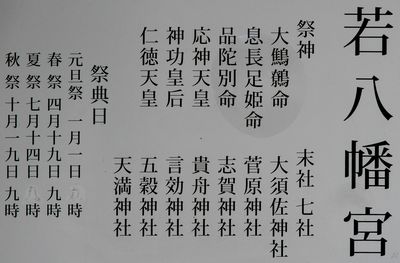 若八幡宮
祭神
大鷦鷯命
息長足姫命
品陀別命
応神天皇
神功皇后
仁徳天皇
末社 七社
大須佐神社
菅原神社
志賀神社
貴舟神社
言効神社
五穀神社
天満神社
祭典日
元旦祭 一月一日 時
春祭 四月十九日 九時
夏祭 七月十四日 時
秋祭 十月一九日 九時